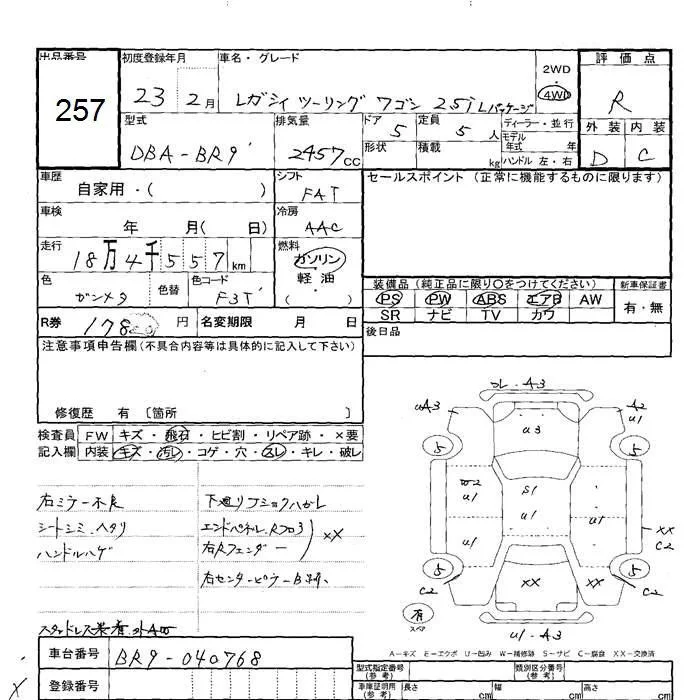 出品番号
257
初度登録年月
23 2月
車名・グレード
レガシィ ツーリング ワゴン 2.5i Lパッケージ
2WD
4WD
評価点
R
外装 内装
D C
型式
DBA-BR9
排気量
2457cc
ドア 5
定員 5人
ディーラー・並行
モデル年式 年
形状
積載 kg
ハンドル 左・右
車歴
自家用・( )
シフト
FAT
セールスポイント (正常に機能するものに限ります)
車検
年 月( 日)
冷房
AAC
走行
18万4千557km
燃料
ガソリン
軽油
( )
色
ガンメタ
色替
色コード
F3T
装備品 (純正品に限り〇をつけてください)
新車保証書
PS PW ABS エアB AW
SR ナビ TV カワ
有・無
R券
円
名変期限 月 日
後日品
注意事項申告欄 (不具合内容等は具体的に記入して下さい)
修復歴 有 〔箇所 〕
検査員記入欄
FW キズ・飛石・ヒビ割・リペア跡・×要
内装 キズ・汚レ・コゲ・穴・スレ・キレ・破レ
右ミラー不良
シートシミ、ヘタリ
ハンドルハゲ
下廻りフショクハガレ
エンドパネル、Rフロア
右Rフェンダー
XX
右センターピラー
車台番号
BR9-040768
登録番号
UA3
A3
A2
U1
U3
5
5
W2
U1
S1
U1
U1
U1
U1
XX
C2
5
5
C2
XX
XX
C2
有
スペア
U1-A3
A-キズ E-エクボ U-凹み W-補修跡 S-サビ C-腐食 XX-交換済
型式指定番号
(参考)
類別区分番号
(参考)
車庫証明用
(参考)
長さ cm
幅 cm
高さ cm